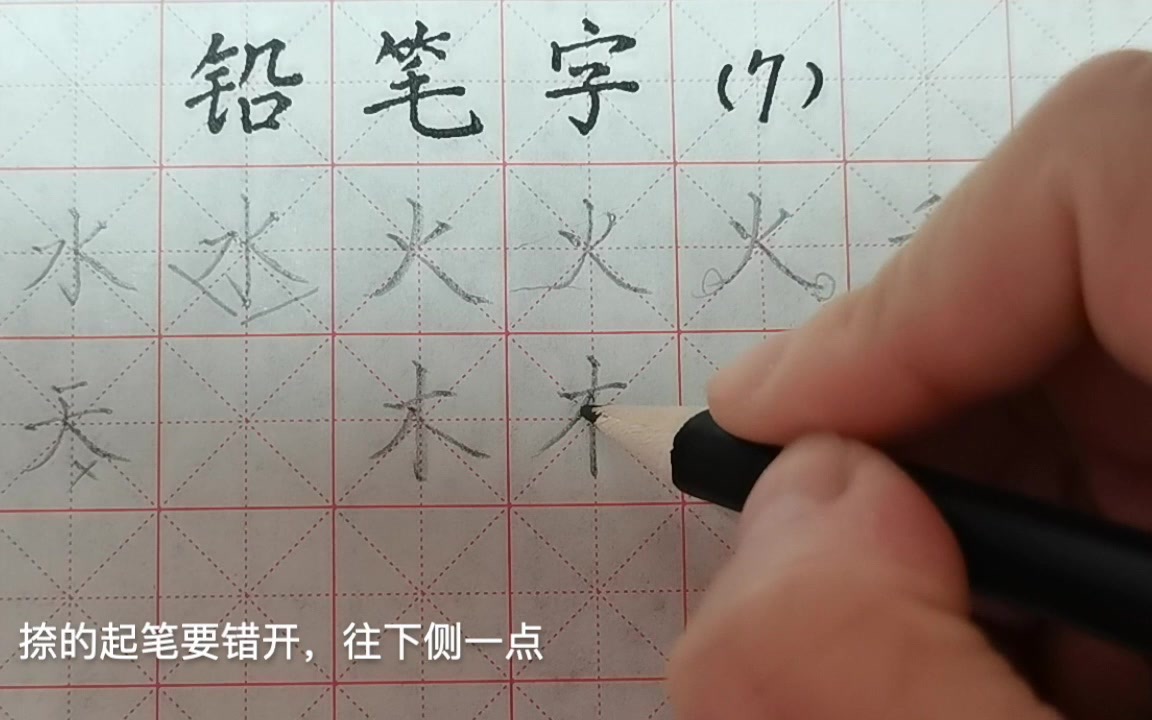 铅笔字(7)
水水火火火
天木木
捺的起笔要错开，往下侧一点